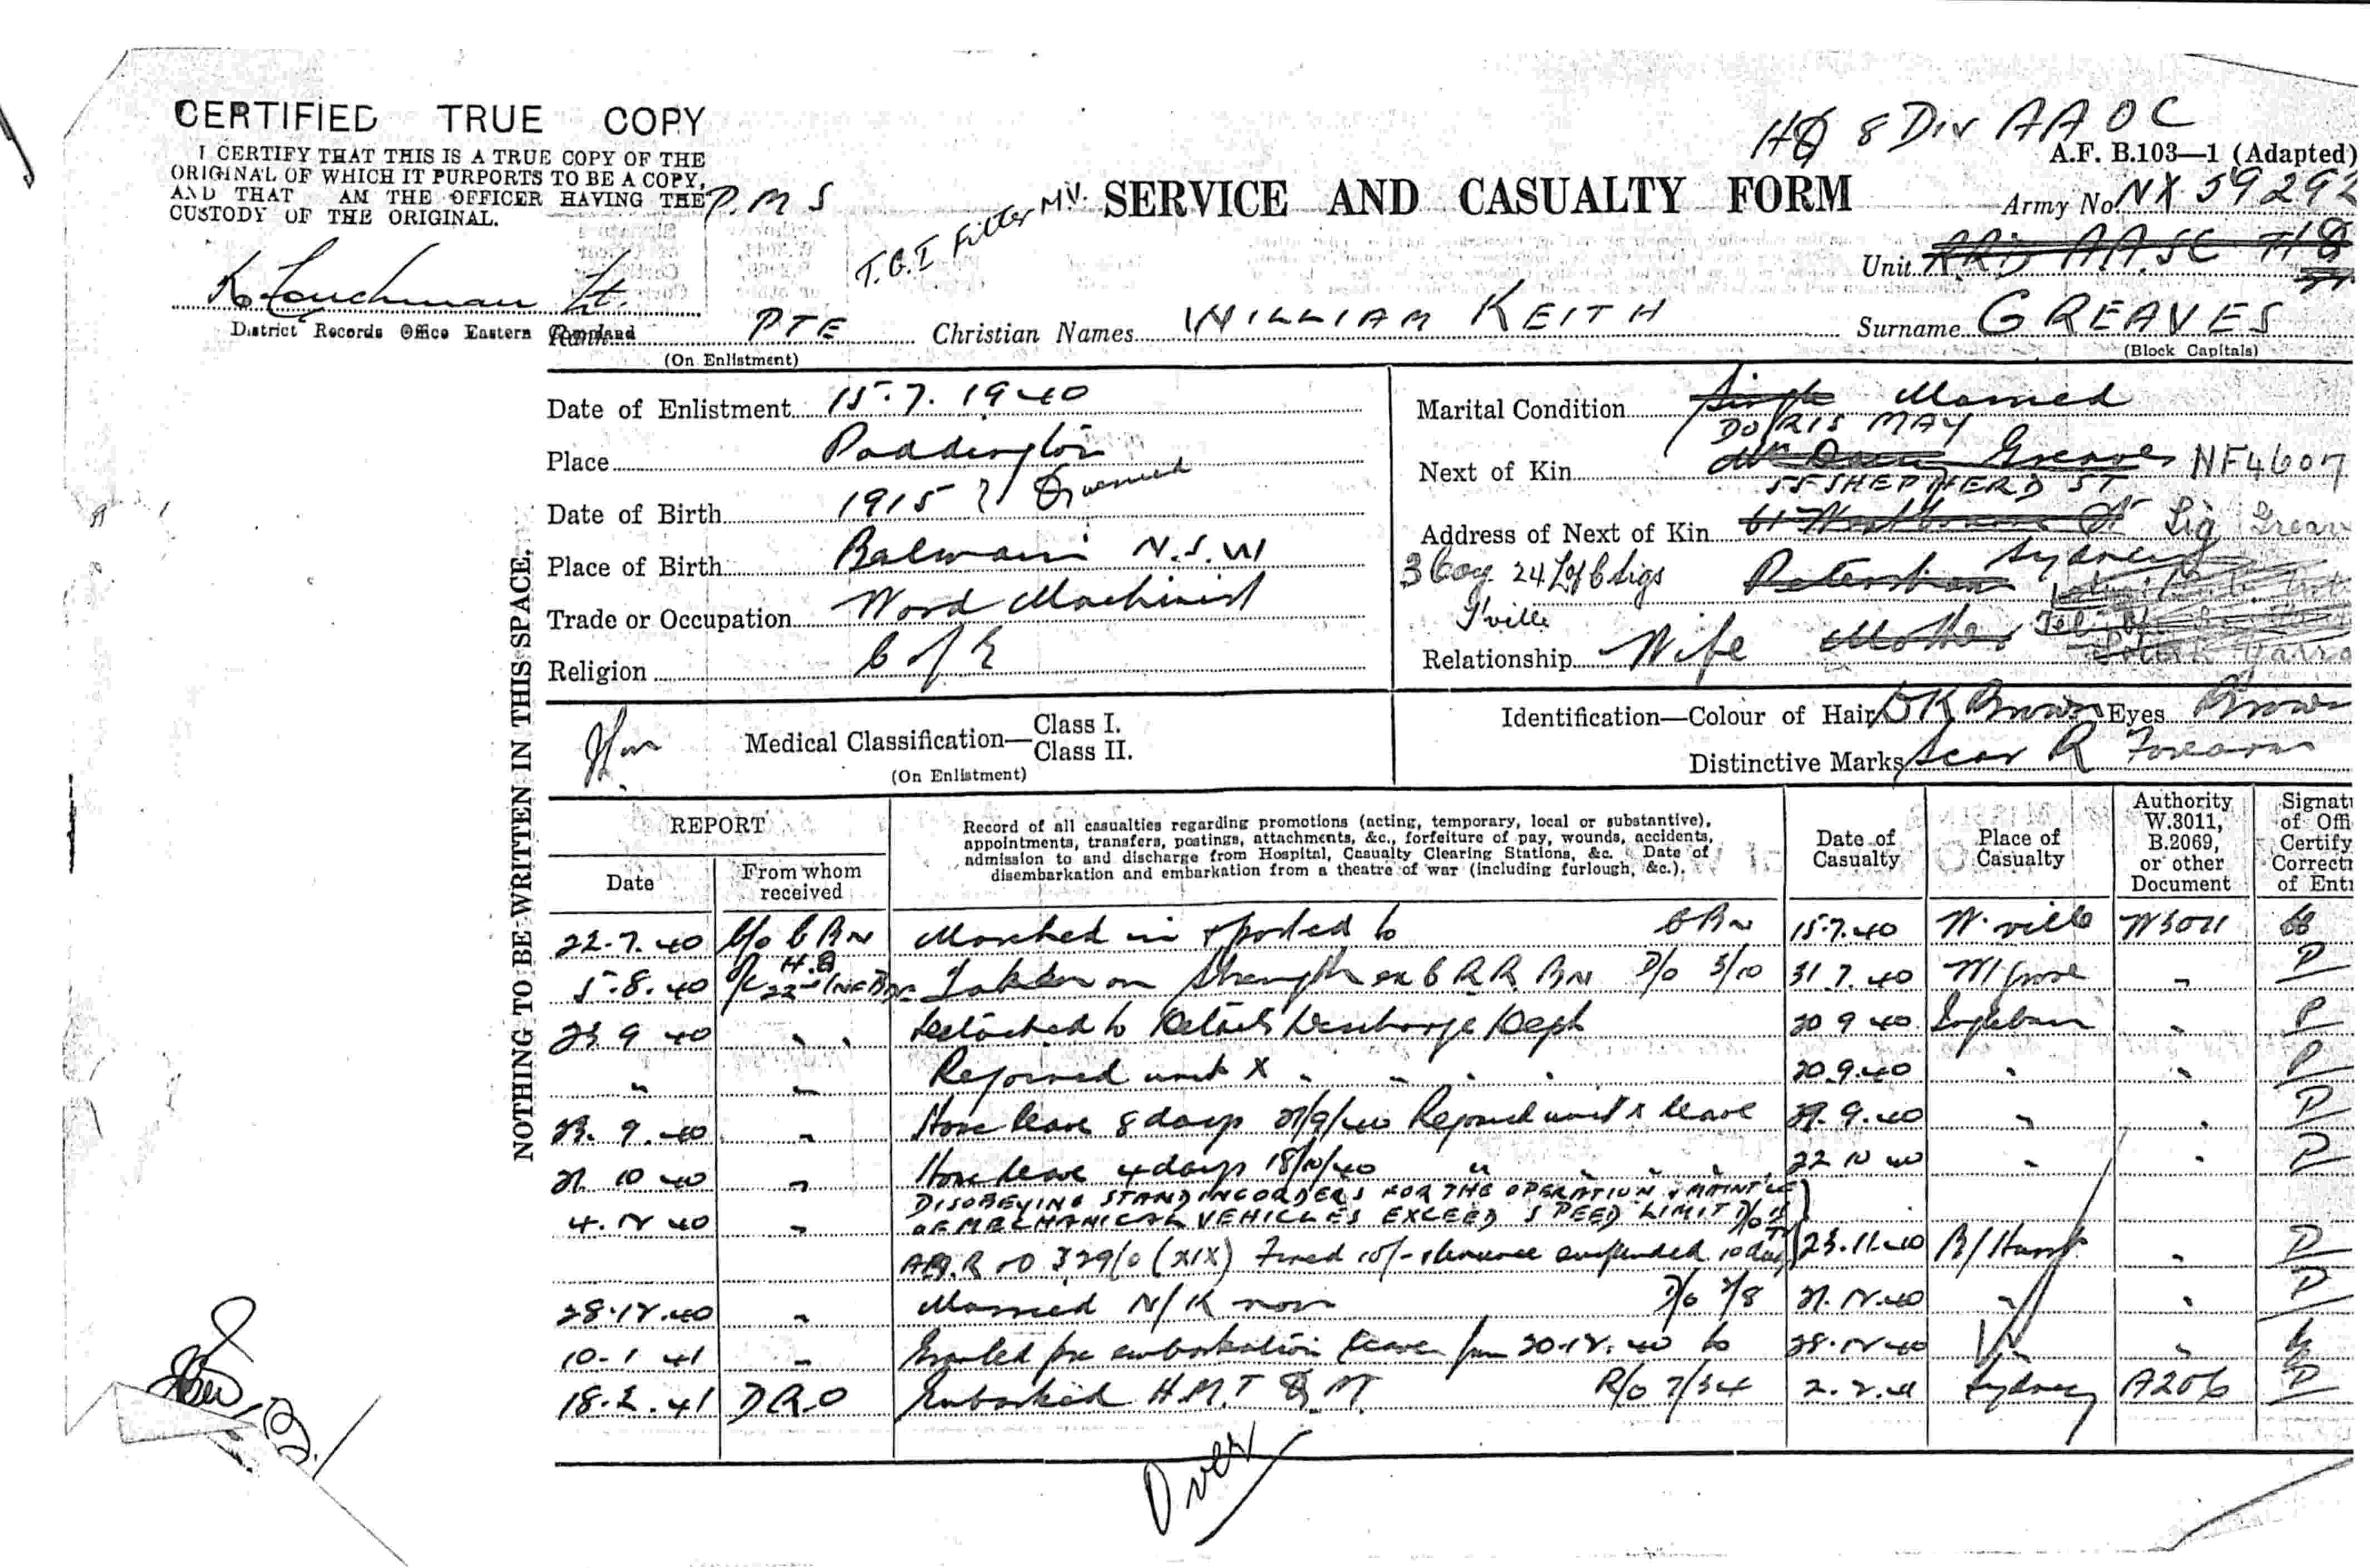 CERTIFIED TRUE COPY
I CERTIFY THAT THIS IS A TRUE COPY OF THE
ORIGINAL OF WHICH IT PURPORTS TO BE A COPY,
AND THAT AM THE OFFICER HAVING THE
CUSTODY OF THE ORIGINAL.
Lt.
District Records Office Eastern Command
P.M.S
T.G.I Fitter MV.
HQ 8 Div AAOC
A.F. B.103—1 (Adapted)
SERVICE AND CASUALTY FORM
Army No. NX 59292
Unit A.A.S.C HQ
PTE Christian Names WILLIAM KEITH Surname GREAVES
(On Enlistment) (Block Capitals)
Date of Enlistment 15.7.1940
Place Paddington
Date of Birth 1915
Place of Birth Balmain N.S.W
Trade or Occupation Wood Machinist
Religion C of E
Marital Condition Single Married
DORIS MAY
Next of Kin Greaves NF4607
55 SHEPHERD ST
Address of Next of Kin St Sig Greav
Sydney
3 Coy 24 L of C Sigs Petersham
T'ville
Relationship Wife Mother
NOTHING TO BE WRITTEN IN THIS SPACE.
Medical Classification— Class I.
Class II.
(On Enlistment)
Identification—Colour of Hair DK Brown Eyes Brown
Distinctive Marks Scar R Forearm
REPORT
Date
From whom received
Record of all casualties regarding promotions (acting, temporary, local or substantive),
appointments, transfers, postings, attachments, &c., forfeiture of pay, wounds, accidents,
admission to and discharge from Hospital, Casualty Clearing Stations, &c. Date of
disembarkation and embarkation from a theatre of war (including furlough, &c.).
Date of Casualty
Place of Casualty
Authority W.3011, B.2069, or other Document
Signat of Offi Certify Correct of Ent
22.7.40 Marched in & posted to 15.7.40 W.ville W3011
5.8.40 Taken on Strength ex R.R. BN D/O 3/10 31.7.40 "
23 9 40 " " Detached to Details Discharge Dept 20 9 40 Ingleburn "
" " Rejoined unit X " " " " 20.9.40 " "
23. 9. 40 " Home leave 8 days Rejoined unit X leave 29.9.40 " "
21 10 40 " Home leave 4 days 18/10/40 " " " " 22 10 40 " "
4.12 40 " DISOBEYING STANDING ORDERS FOR THE OPERATION & MAINT'CE
OF MECHANICAL VEHICLES EXCEED SPEED LIMIT
Fined 10/- & licence suspended 10 days 23.11.40 B/Hurst "
28.12.40 " Married N/K now 21.12.40 " "
10.1 41 " Granted pre embarkation leave from 20.12.40 to 28.12.40 "
18.2.41 D.R.O Embarked H.M.T Q.M. R/O 7/34 2.2.41 Sydney A206
Over